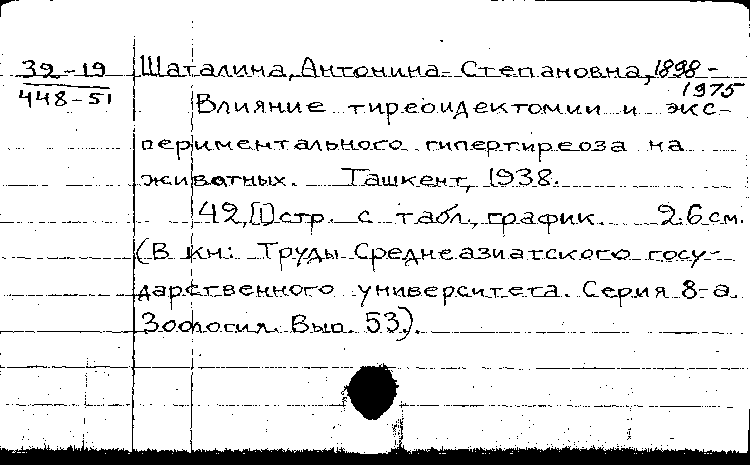 39-19
448-51
Шаталина, Антонина Степановна, 1898-
1975
Влияние тиреоидектомии и экс-
периментального гипертиреоза на
животных. Ташкент, 1938.
42,[1] стр. с табл., график. 26 см.
(В кн: Труды Среднеазиатского госу-
дарственного университета. Серия 8-а.
Зоология. Вып. 53.).